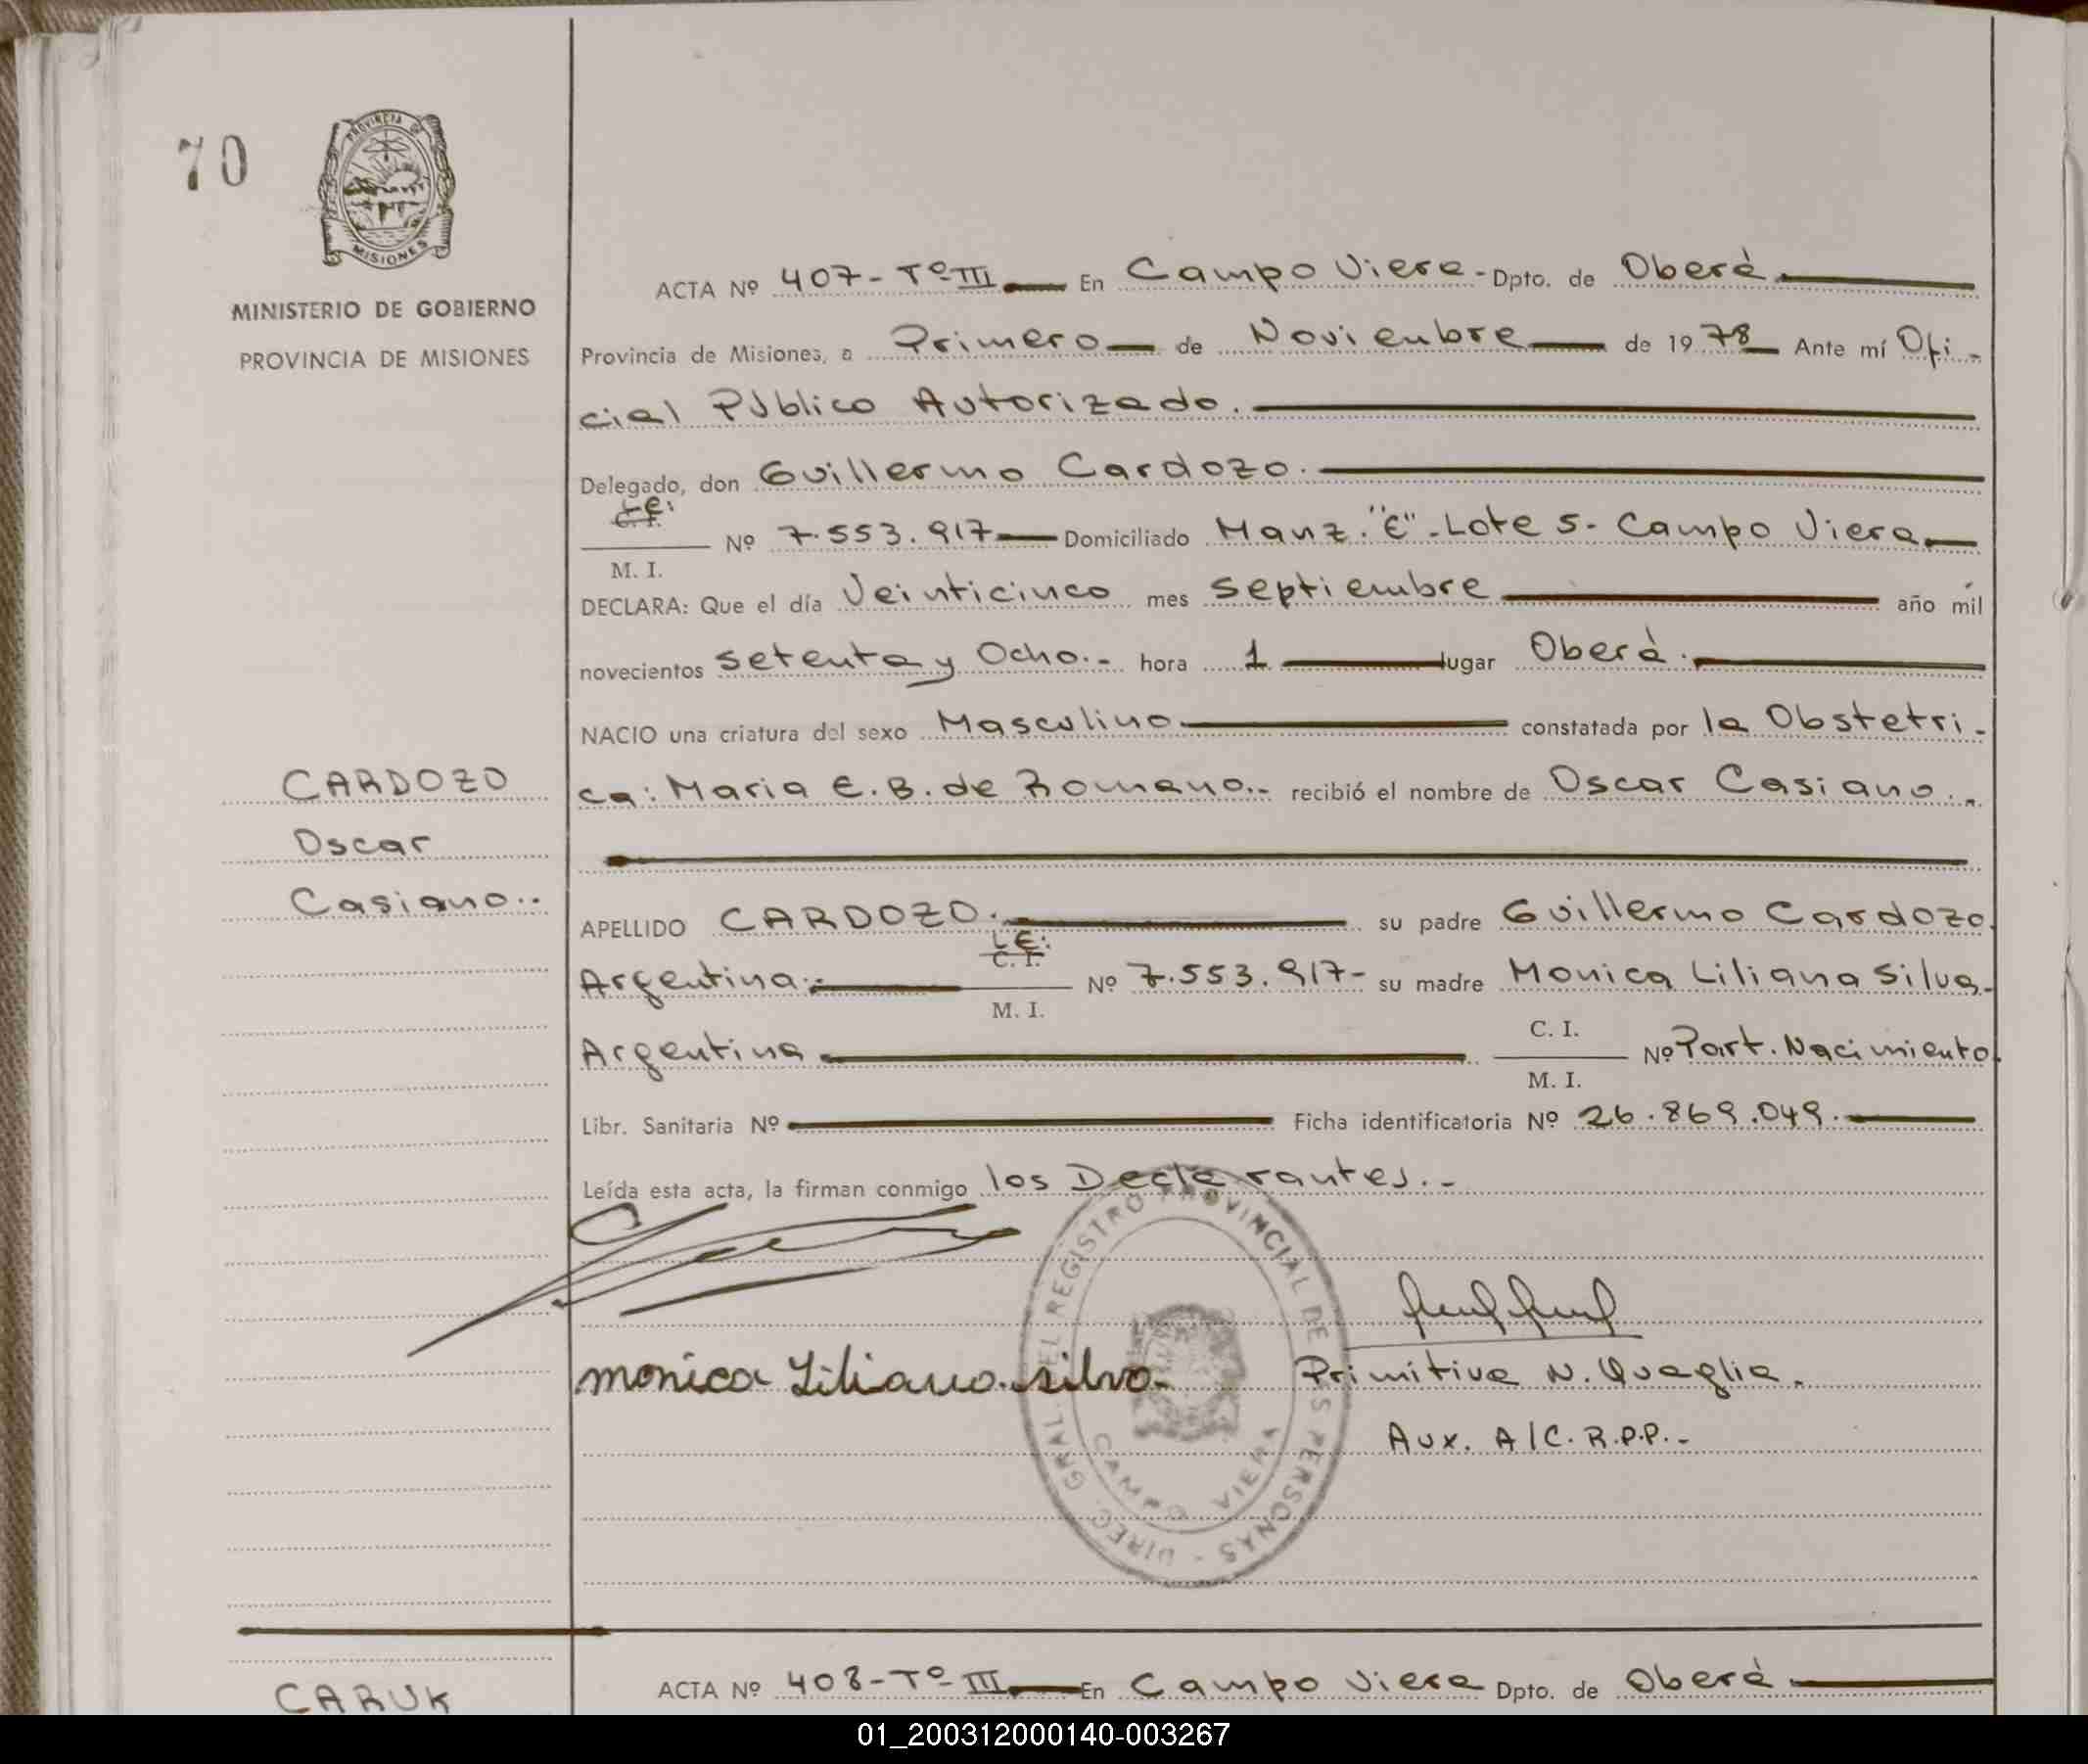 70
PROVINCIA DE
MISIONES
MINISTERIO DE GOBIERNO
PROVINCIA DE MISIONES
ACTA Nº 407-Tº III En Campo Viera - Dpto. de Oberá
Provincia de Misiones, a Primero de Noviembre de 1978 Ante mí Ofi-
cial Público Autorizado.
Delegado, don Guillermo Cardozo.
L.E.
C. I.
M. I.
Nº 7.553.917 Domiciliado Manz. "E" - Lote 5 - Campo Viera
DECLARA: Que el día Veinticinco mes Septiembre año mil
novecientos setenta y Ocho.- hora 1 lugar Oberá.
NACIO una criatura del sexo Masculino constatada por la Obstetri-
ca: Maria E. B. de Romano.- recibió el nombre de Oscar Casiano.-
CARDOZO
Oscar
Casiano..
APELLIDO CARDOZO. su padre Guillermo Cardozo.
L.E.
C. I.
Argentina.- Nº 7.553.917- su madre Monica Liliana Silva-
M. I.
C. I.
Argentina Nº Part. Nacimiento.
M. I.
Libr. Sanitaria Nº Ficha identificatoria Nº 26.869.049.
Leída esta acta, la firman conmigo los Declarantes.-
monica Liliana silva-
DIREC. GRAL. DEL REGISTRO PROVINCIAL DE LAS PERSONAS -
CAMPO VIERA
Primitiva N. Quaglia.
Aux. A/C. R.P.P.-
CARUK
ACTA Nº 408-Tº III En Campo Viera Dpto. de Oberá
01_200312000140-003267